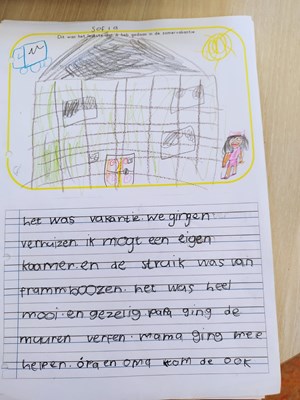 Dit was het leukste dat ik heb gedaan in de zomervakantie
het was vakantie. we gingen
verhuizen. ik mogt een eigen
kaamer. en de struik was van
frammboozen. het was heel
mooi. en gezelig. papa ging de
muuren verfen. mama ging mee
helpen. opa en oma kom de ook